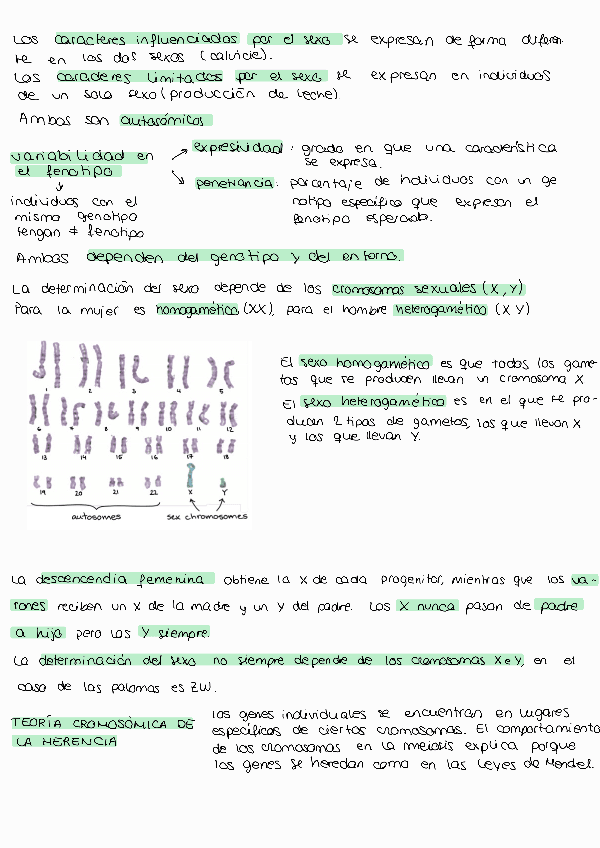 Los caracteres influenciados por el sexo se expresan de forma diferen-
te en los dos sexos (calvicie).
Los caracteres limitados por el sexo se expresan en individuos
de un solo sexo (producción de leche)
Ambos son autosómicos
variabilidad en
el fenotipo
individuos con el
mismo genotipo
tengan ≠ fenotipo
expresividad: grado en que una característica
se expresa.
penetrancia: porcentaje de individuos con un ge
notipo específico que expresan el
fenotipo esperado.
Ambos dependen del genotipo y del entorno.
La determinación del sexo depende de los cromosomas sexuales (X, Y)
Para la mujer es homogamético (XX), para el hombre heterogamético (XY)
1 2 3 4 5
6 7 8 9 10 11 12
13 14 15 16 17 18
19 20 21 22 X Y
autosomes sex chromosomes
El sexo homogamético es que todos los game-
tos que se producen llevan un cromosoma X
El sexo heterogamético es en el que se pro-
ducen 2 tipos de gametos, los que llevan X
y los que llevan Y.
La descencendia femenina obtiene la X de cada progenitor, mientras que los va-
rones reciben un X de la madre y un Y del padre. Los X nunca pasan de padre
a hijo pero los Y siempre.
La determinación del sexo no siempre depende de los cromosomas X e Y, en el
caso de las palomas es ZW.
TEORÍA CROMOSÓMICA DE
LA HERENCIA
los genes individuales se encuentran en lugares
específicos de ciertos cromosomas. El comportamiento
de los cromosomas en la meiosis explica porque
los genes se heredan como en las Leyes de Mendel.